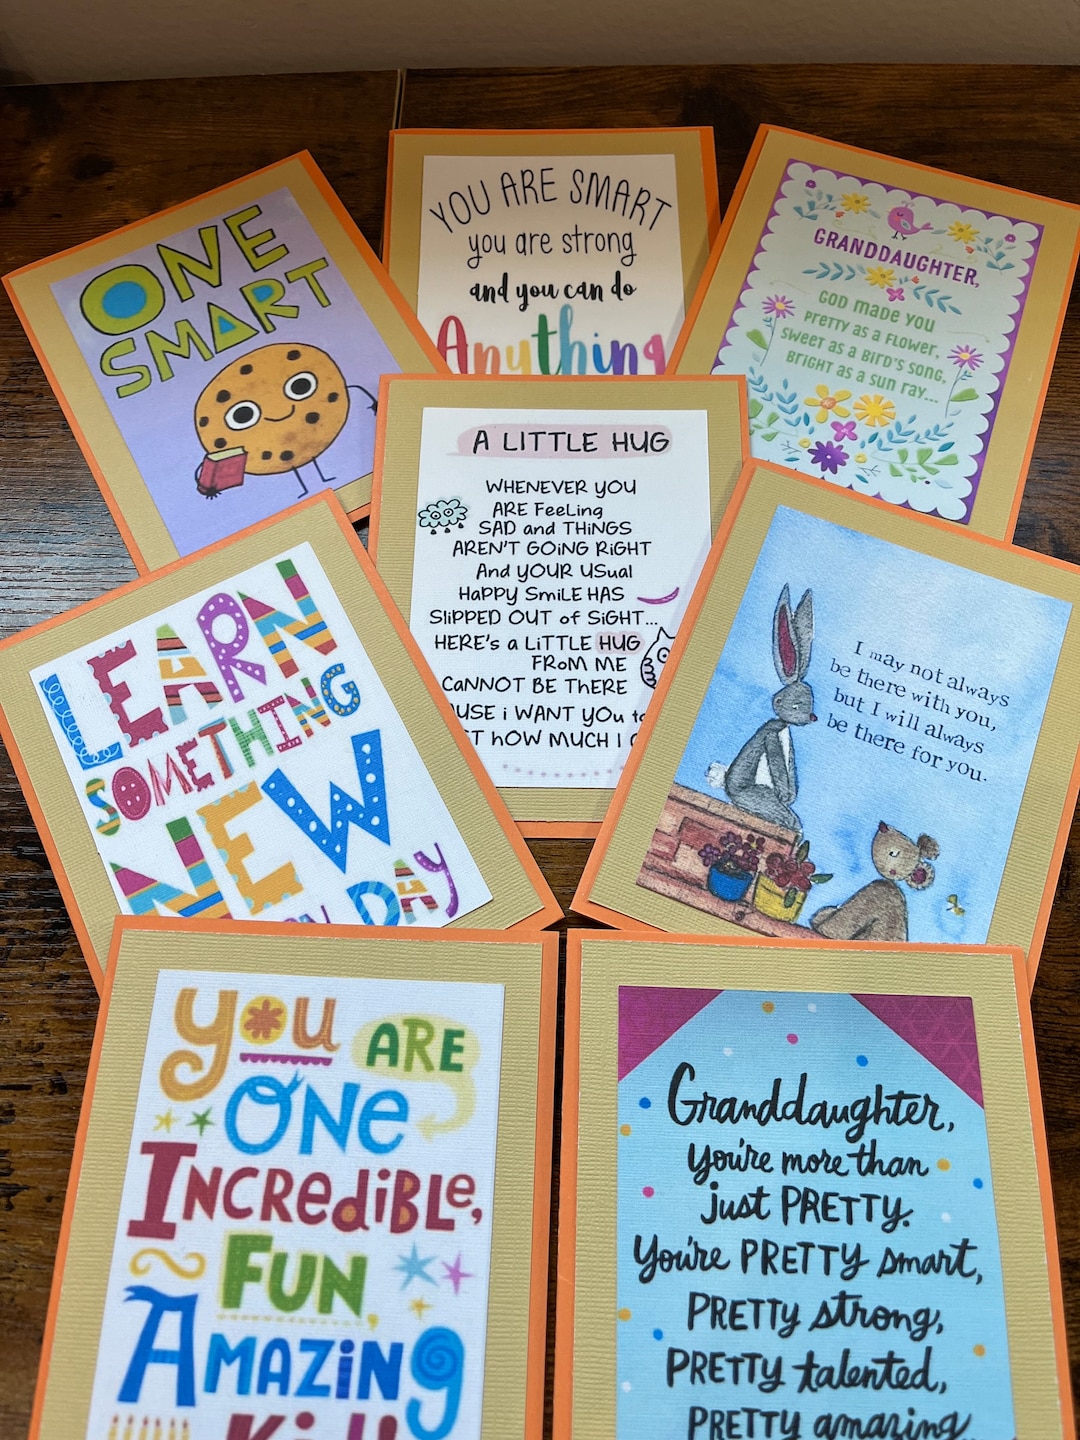 ONE
SMART
YOU ARE SMART
you are strong
and you can do
Anything
GRANDDAUGHTER,
GOD MADE YOU
PRETTY AS A FLOWER,
SWEET AS A BIRD'S SONG,
BRIGHT AS A SUN RAY...
A LITTLE HUG
WHENEVER YOU
ARE FeeLing
SAD and THiNGS
AREN'T GOiNG RiGHT
And YOUR USual
HaPPy SmiLE HAS
SliPPED OUT of SiGHT...
HERE's a LiTTLE HUG
FRoM ME
CaNNOT BE THERE
USE i WANT YOu
HOW MUCH I
LEARN
SOMETHING
NEW
DAY
I may not always
be there with you,
but I will always
be there for you.
you ARE
ONe
INCReDiBLe,
FUN,
AMAZiNg
Granddaughter,
you're more than
just PRETTY.
You're PRETTY smart,
PRETTY strong,
PRETTY talented,
PRETTY amazing